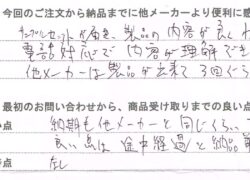 今回のご注文から納品までに他メーカーより便利に感
サンプルセットが届き、製品の内容が良くわ
電話対応で内容が理解でき
他メーカーは製品が出来て3回ぐら
最初のお問い合わせから、商品受け取りまでの良い点
い点 納期も他メーカーと同じくら
良い点は途中経過と納品
な点 なし